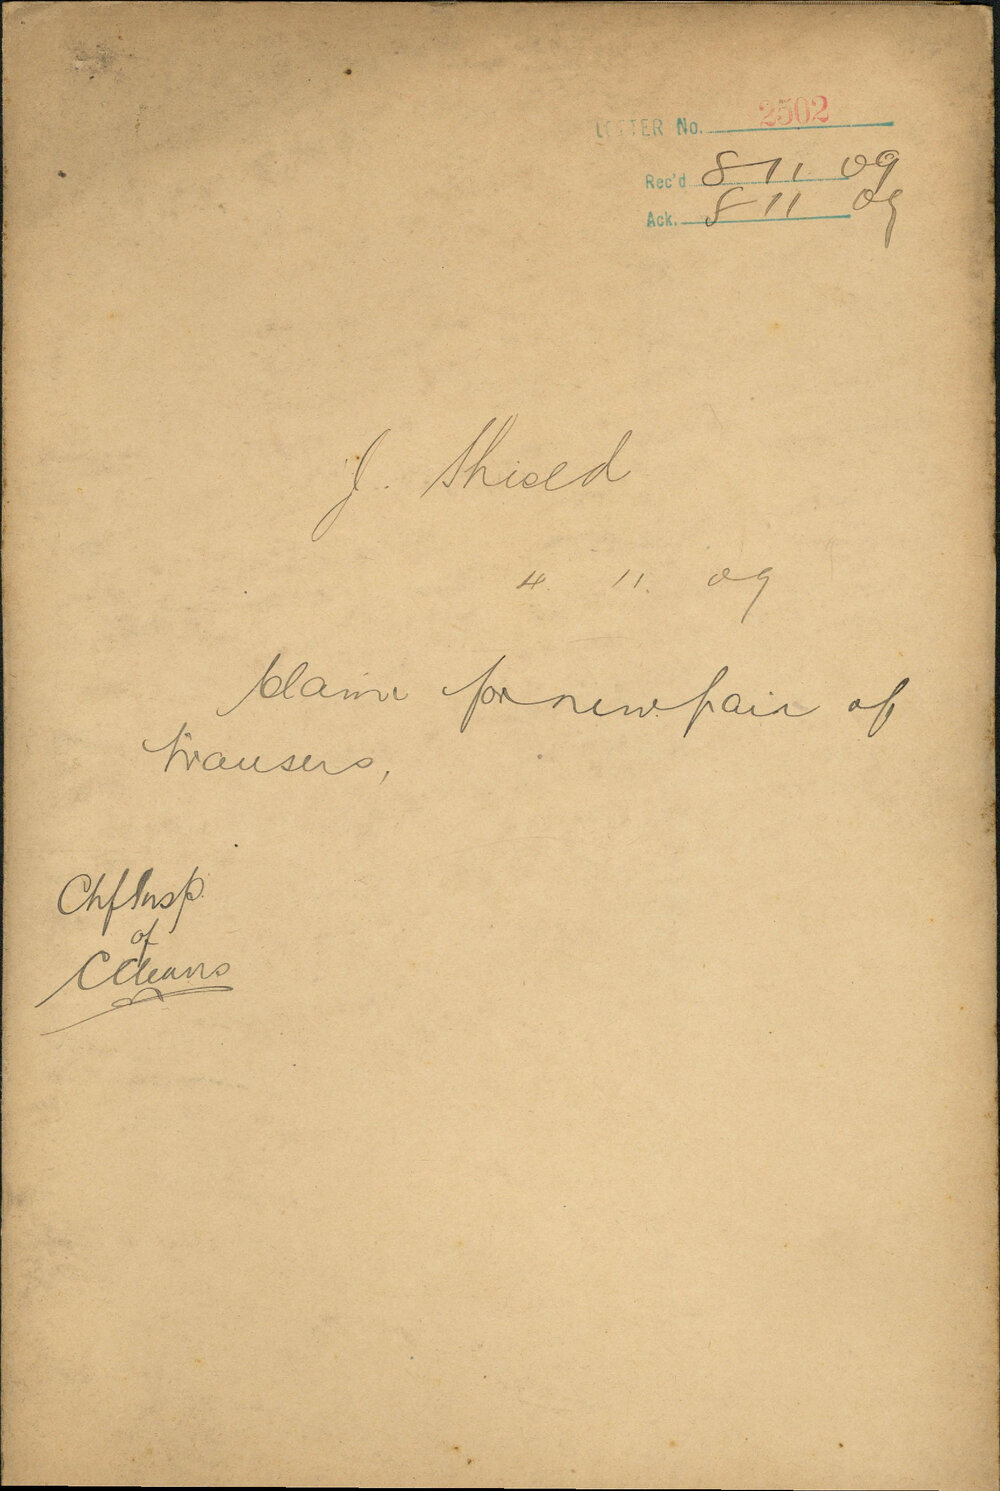 LETTER No. 2502
Rec'd 8 11. 09
Ack. 8 11 09
J. Shield
4. 11. 09
Claim for new pair of
trousers,
Chf Insp.
of